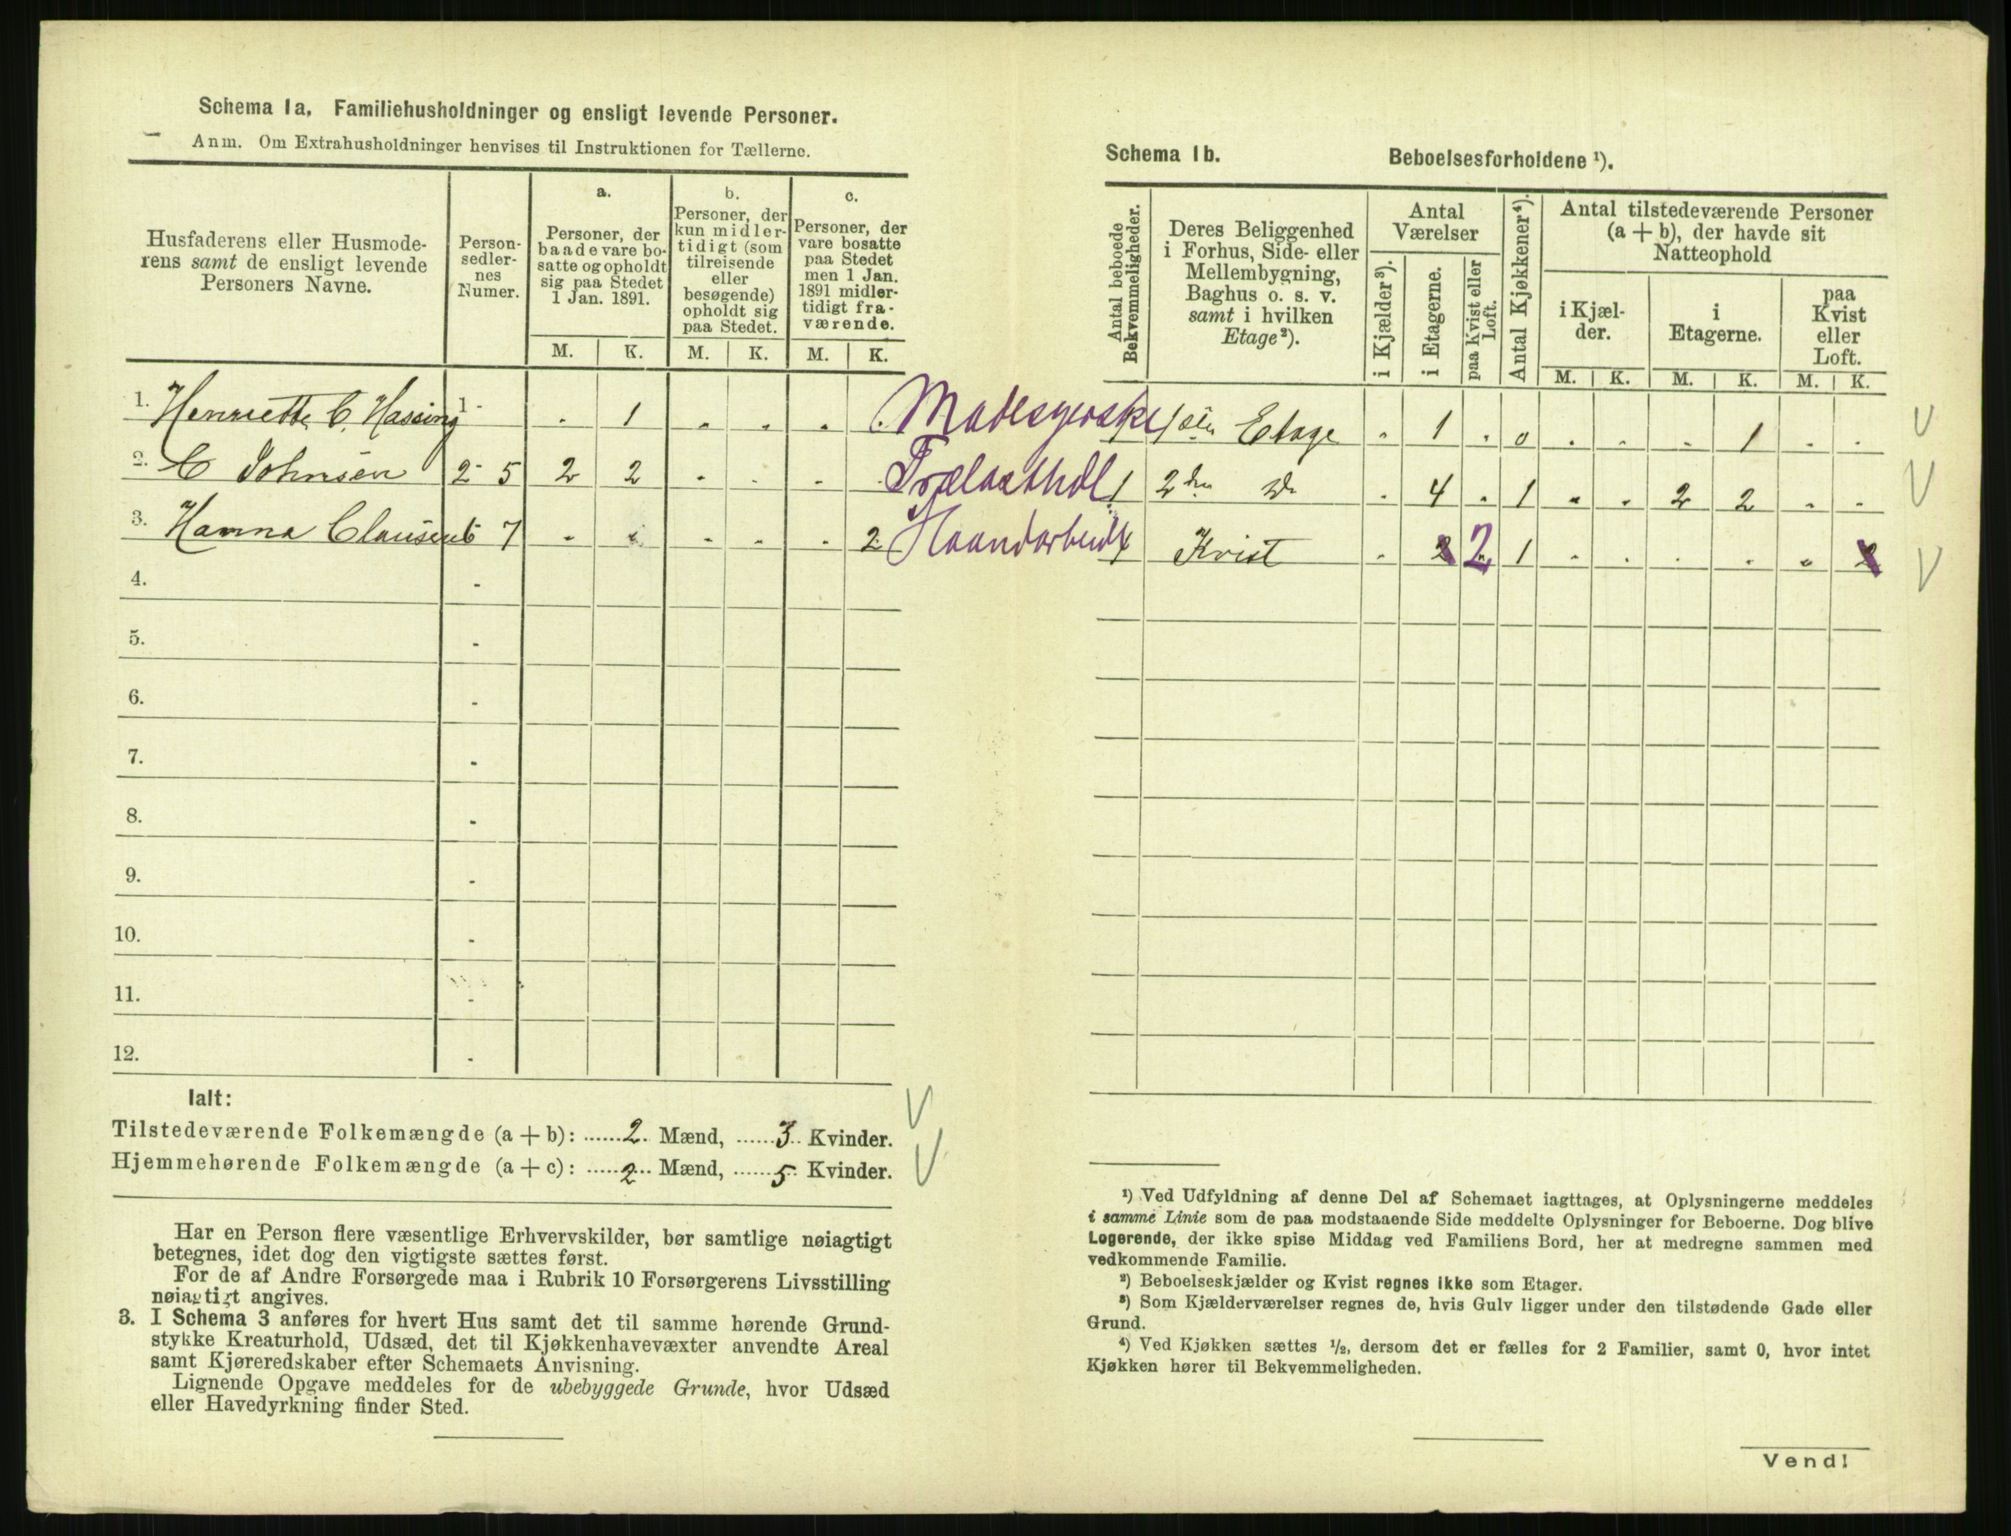 Schema 1a. Familiehusholdninger og ensligt levende Personer.
Anm. Om Extrahusholdninger henvises til Instruktionen for Tællerne.
Husfaderens eller Husmoderens samt de ensligt levende Personers Navne.
Personsedlernes Numer.
a.
Personer, der baade vare bosatte og opholdt sig paa Stedet 1 Jan. 1891.
b.
Personer, der kun midlertidigt (som tilreisende eller besøgende) opholdt sig paa Stedet.
c.
Personer, der vare bosatte paa Stedet men 1 Jan. 1891 midlertidigt fraværende.
M. K. M. K. M. K.
1. Henriette C. Hassing 1 - . 1 . . . .
2. C Johnsen 2 - 5 2 2 . . . .
3. Hanna Clausen 6 - 7 . . . . . 2
4. -
5. -
6. -
7. -
8. -
9. -
10. -
11. -
12. -
Ialt:
Tilstedeværende Folkemængde (a + b): 2 Mænd, 3 Kvinder.
Hjemmehørende Folkemængde (a + c): 2 Mænd, 5 Kvinder.
Har en Person flere væsentlige Erhvervskilder, bør samtlige nøiagtigt
betegnes, idet dog den vigtigste sættes først.
For de af Andre Forsørgede maa i Rubrik 10 Forsørgerens Livsstilling
nøiagtigt angives.
3. I Schema 3 anføres for hvert Hus samt det til samme hørende Grund-
stykke Kreaturhold, Udsæd, det til Kjøkkenhavevæxter anvendte Areal
samt Kjøreredskaber efter Schemaets Anvisning.
Lignende Opgave meddeles for de ubebyggede Grunde, hvor Udsæd
eller Havedyrkning finder Sted.
Schema 1b. Beboelsesforholdene ¹).
Antal beboede Bekvemmeligheder.
Deres Beliggenhed i Forhus, Side- eller Mellembygning, Baghus o. s. v. samt i hvilken Etage²).
Antal Værelser
i Kjælder³).
i Etagerne.
paa Kvist eller Loft.
Antal Kjøkkener⁴).
Antal tilstedeværende Personer (a + b), der havde sit Natteophold
i Kjælder.
i Etagerne.
paa Kvist eller Loft.
M. K. M. K. M. K.
Modesyerske 1 1ste Etage . 1 . 0 . . . 1 . .
Trælasthdl 1 2den Do . 4 . 1 . . 2 2 . .
Haandarbeide 1 Kvist . 2 2 1 . . . . . 2
¹) Ved Udfyldning af denne Del af Schemaet iagttages, at Oplysningerne meddeles
i samme Linie som de paa modstaaende Side meddelte Oplysninger for Beboerne. Dog blive
Logerende, der ikke spise Middag ved Familiens Bord, her at medregne sammen med
vedkommende Familie.
²) Beboelseskjælder og Kvist regnes ikke som Etager.
³) Som Kjælderværelser regnes de, hvis Gulv ligger under den tilstødende Gade eller
Grund.
⁴) Ved Kjøkken sættes ½, dersom det er fælles for 2 Familier, samt 0, hvor intet
Kjøkken hører til Bekvemmeligheden.
Vend!